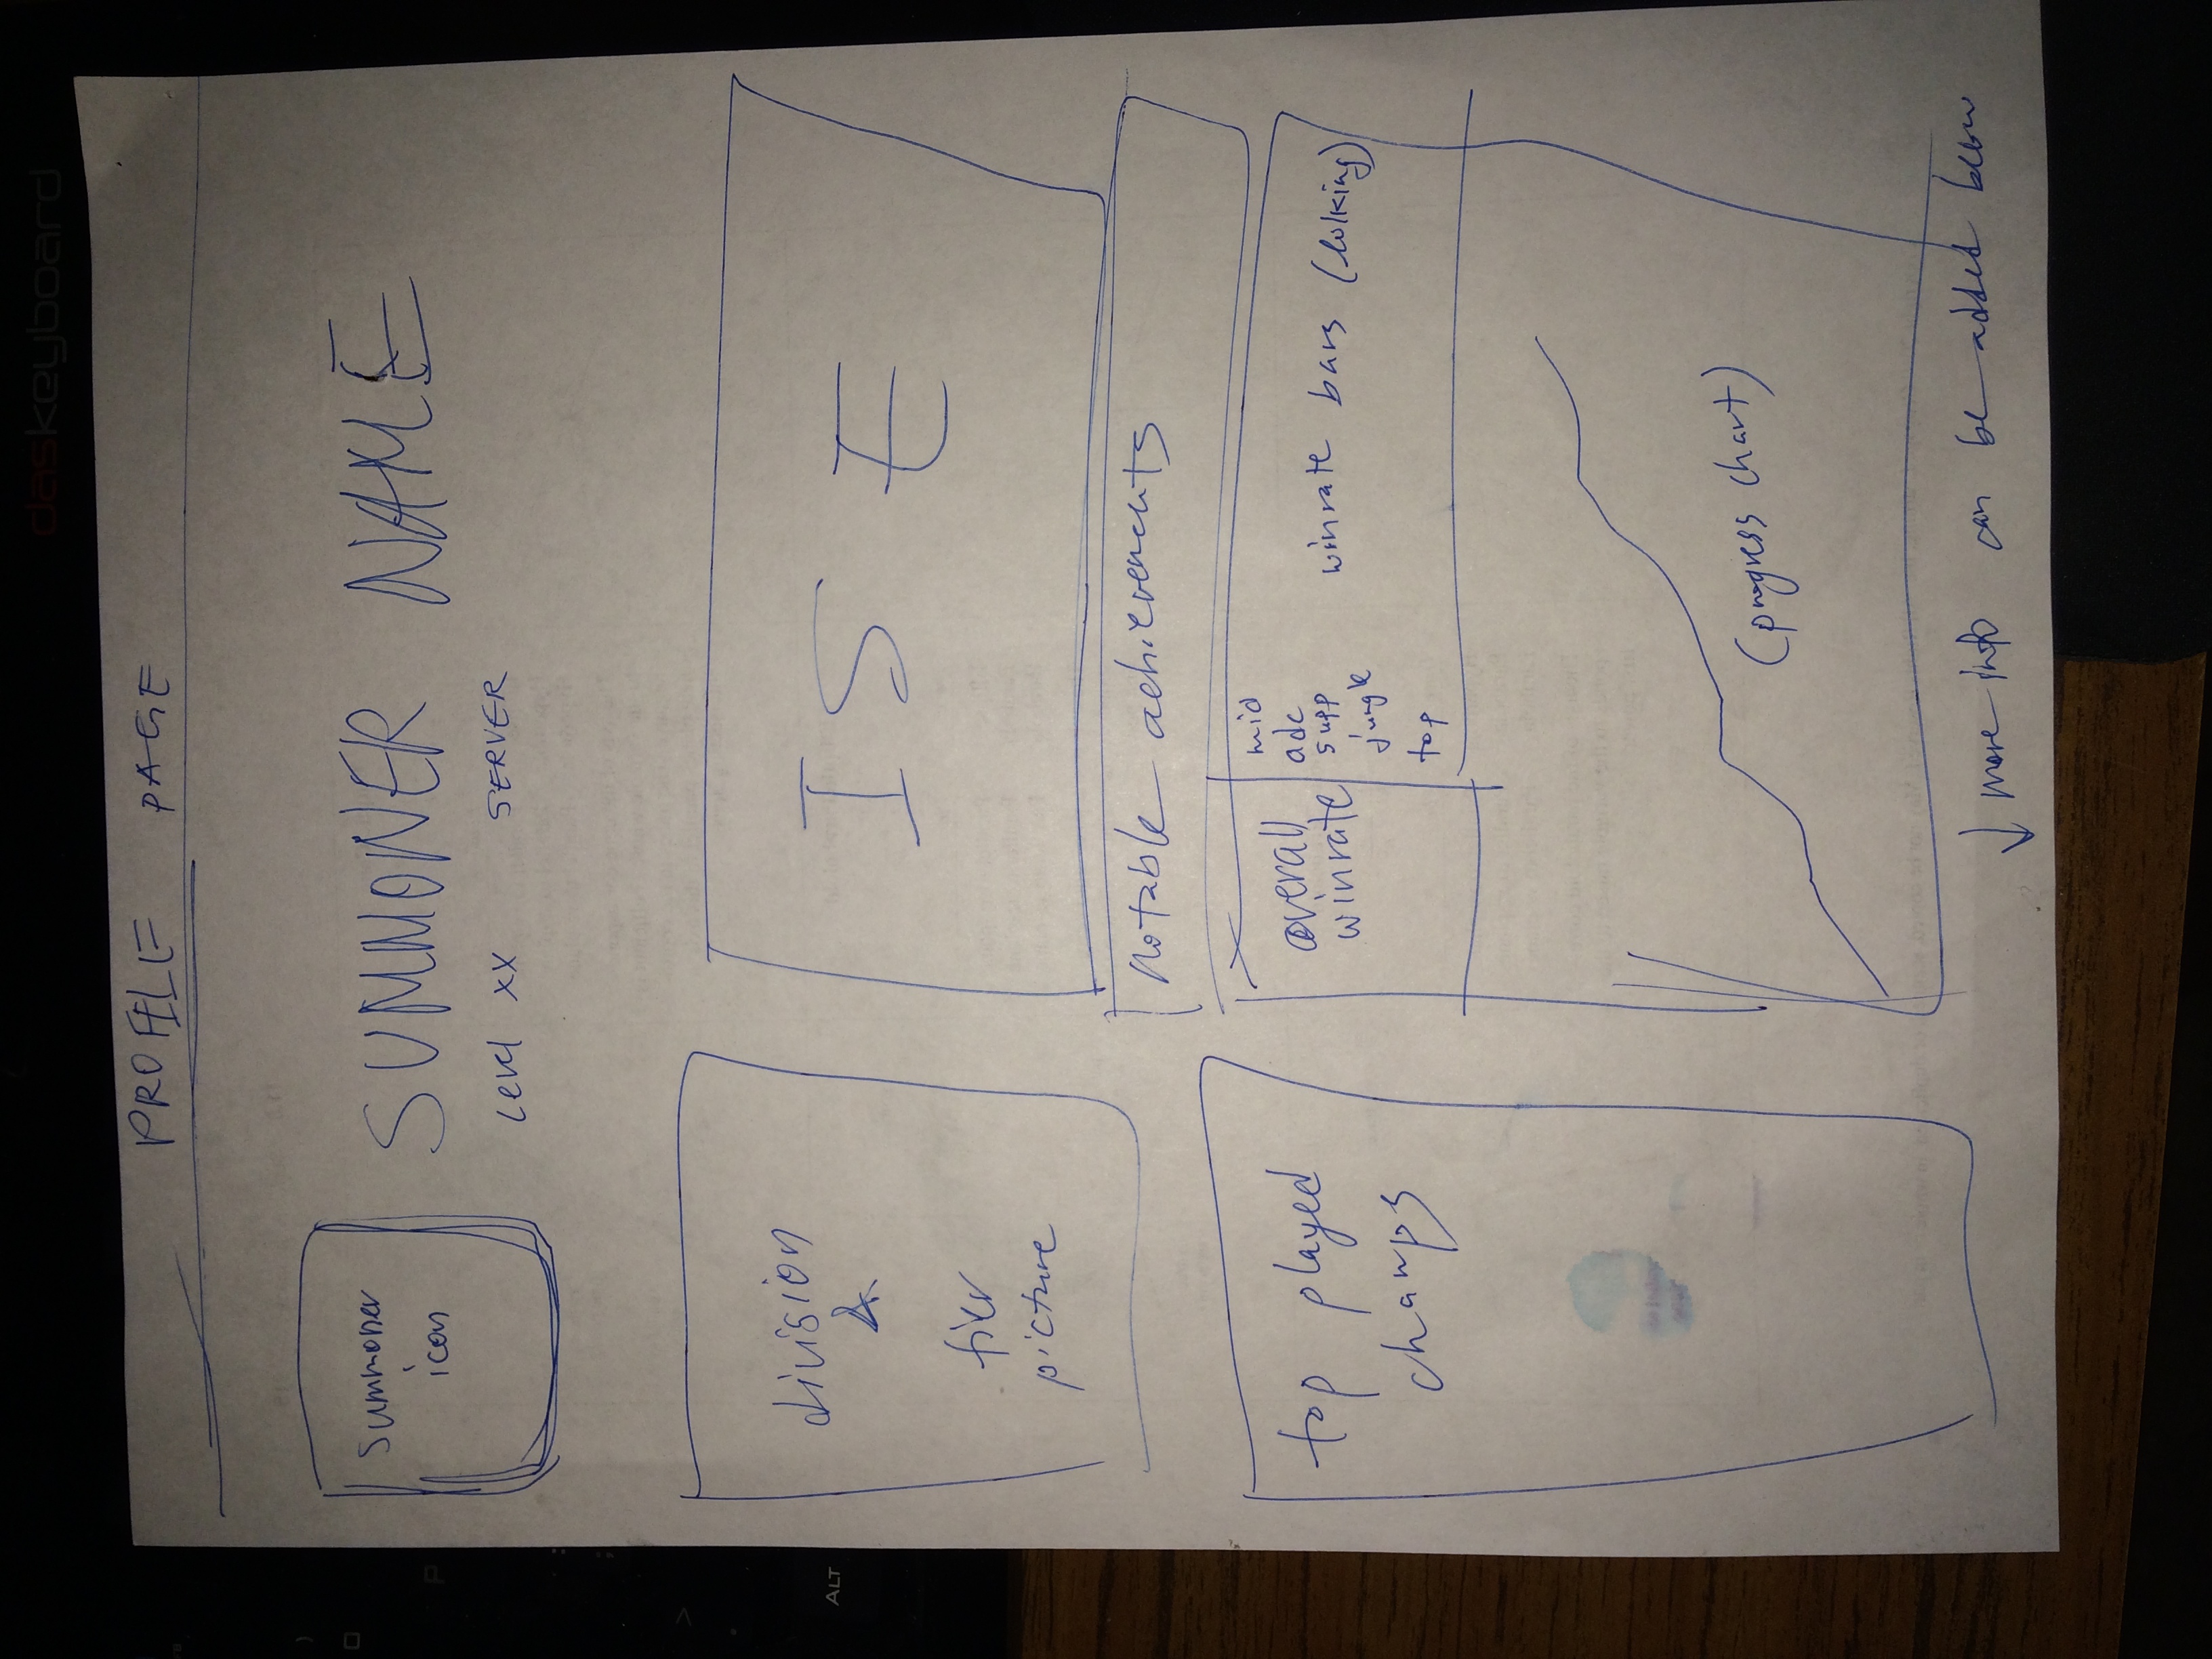 daskeyboard
PROFILE PAGE
Summoner
icon
SUMMONER NAME
Level xx SERVER
P
ALT
division
&
tier
picture
ISE
notable achievements
top played
champs
overall
winrate
mid
adc
supp
jungle
top
winrate bars (lolking)
(progress chart)
↓ more info can be added below